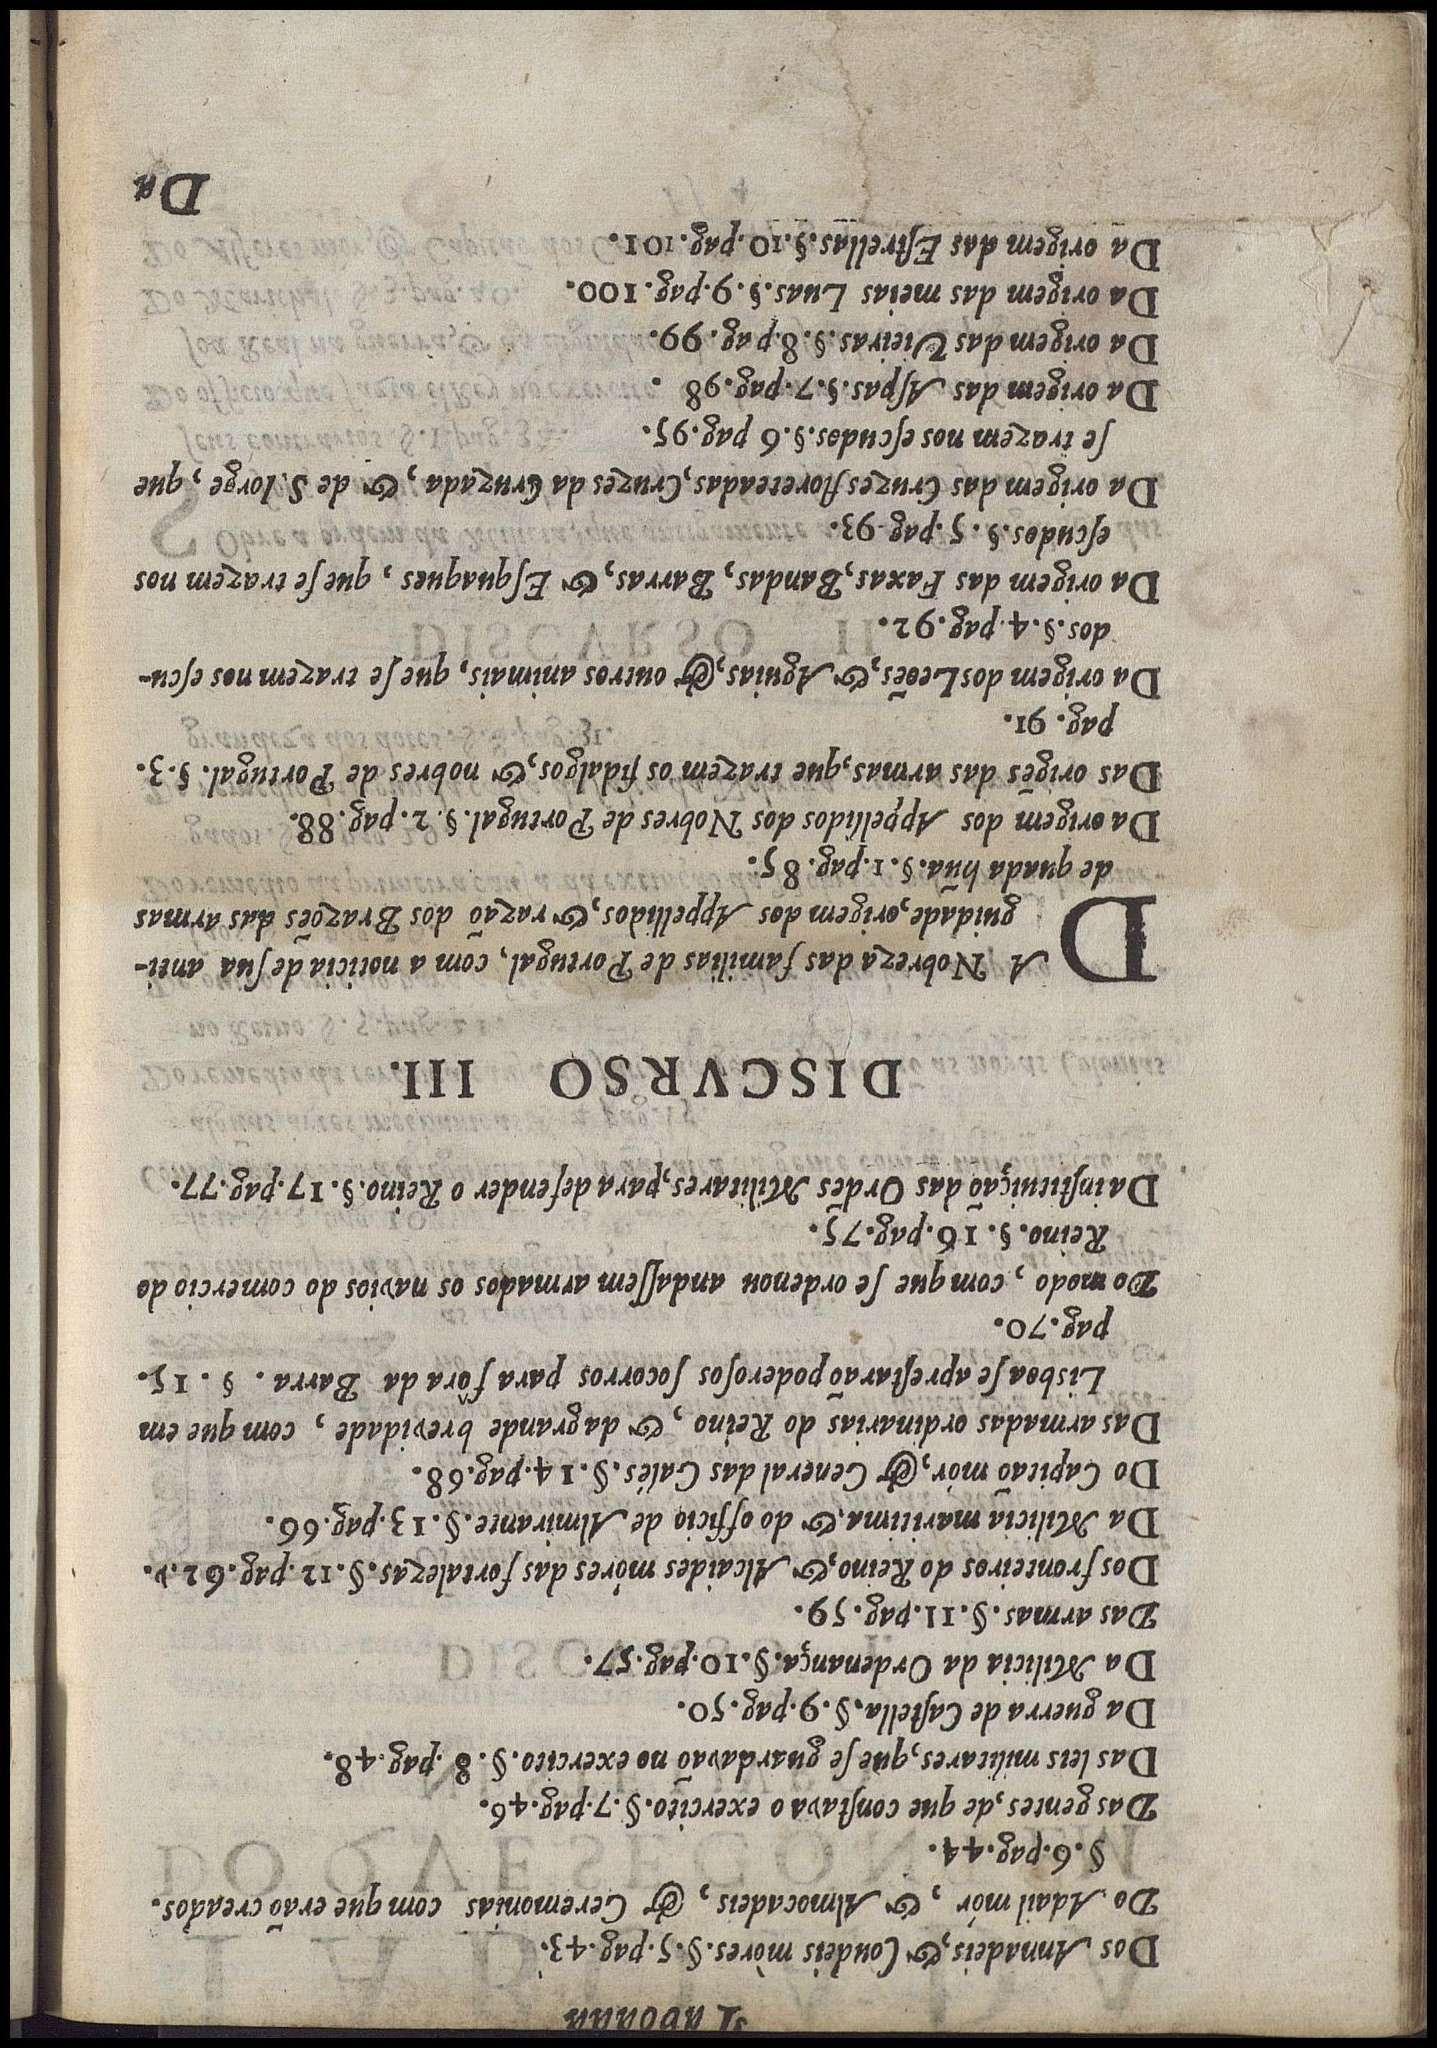 Taboada
Dos Annadeis, & Coudeis mòres. §. 5. pag. 43.
Do Adail mór, & Almocadeis, & Ceremonias com que erão creados.
§. 6. pag. 44.
Das gentes, de que constava o exercito. §. 7. pag. 46.
Das leis militares, que se guardavão no exercito. §. 8. pag. 48.
Da guerra de Castella. §. 9. pag. 50.
Da Milicia da Ordenança. §. 10. pag. 57.
Das armas. §. 11. pag. 59.
Dos fronteiros do Reino, & Alcaides móres das fortalezas. §. 12. pag. 62 v.
Da Milicia maritima, & do officio de Almirante. §. 13. pag. 66.
Do Capitão mòr, & General das Galés. §. 14. pag. 68.
Das armadas ordinarias do Reino, & da grande brevidade, com que em
Lisboa se aprestarão poderosos socorros para fóra da Barra. §. 15.
pag. 70.
Do modo, com que se ordenou andassem armados os navios do comercio do
Reino. §. 16. pag. 75.
Da instituição das Ordẽs Militares, para defender o Reino. §. 17. pag. 77.
DISCVRSO III.
DA Nobreza das familias de Portugal, com a noticia de sua anti-
guidade, origem dos Appellidos, & razão dos Brazões das armas
de quada hũa. §. 1. pag. 85.
Da origem dos Appellidos dos Nobres de Portugal. §. 2. pag. 88.
Das origẽs das armas, que trazem os fidalgos, & nobres de Portugal. §. 3.
pag. 91.
Da origem dos Leoẽs, & Aguias, & outros animais, que se trazem nos escu-
dos. §. 4. pag. 92.
Da origem das Faxas, Bandas, Barras, & Esquaques, que se trazem nos
escudos. §. 5. pag. 93.
Da origem das Cruzes floreteadas, Cruzes da Cruzada, & de S. Iorge, que
se trazem nos escudos. §. 6 pag. 95.
Da origem das Aspas. §. 7. pag. 98.
Da origem das Vieiras. §. 8. pag. 99.
Da origem das meias Luas. §. 9. pag. 100.
Da origem das Estrellas. §. 10. pag. 101.
Da